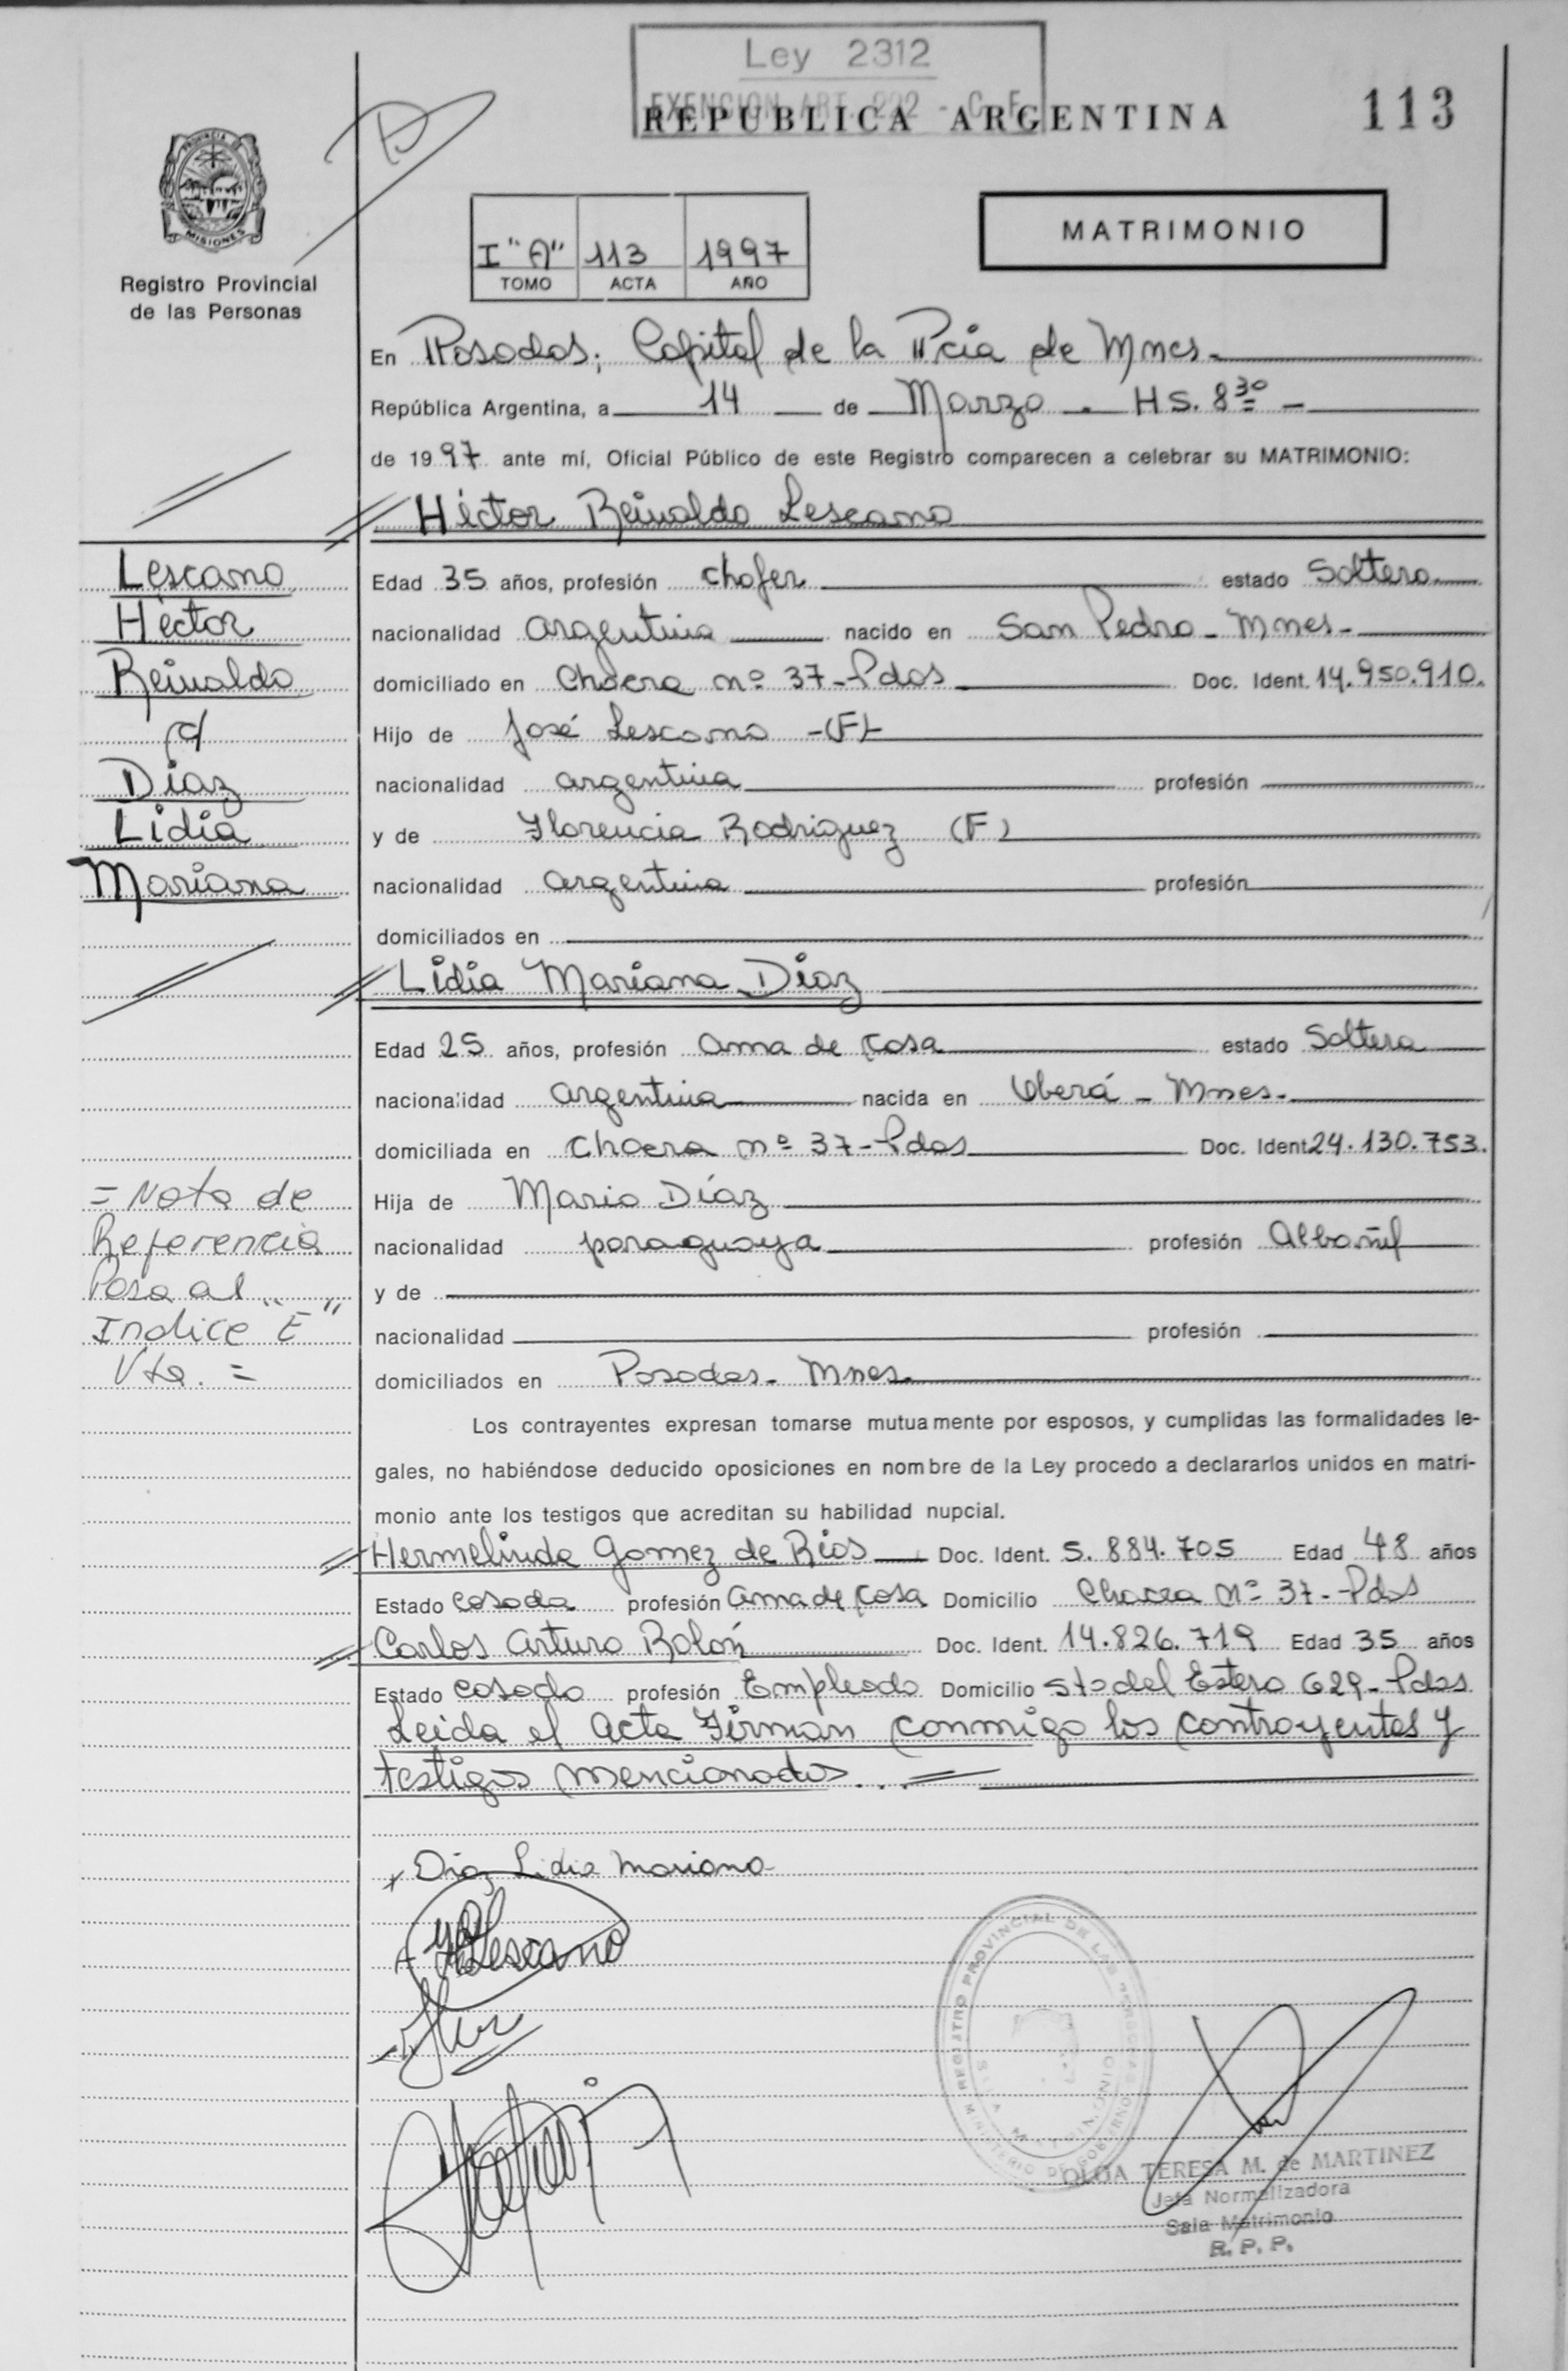 Ley 2312
EXENCION ART. 222 - C. F.
REPUBLICA ARGENTINA
113
PROVINCIA DE
MISIONES
Registro Provincial
de las Personas
I "A" 113 1997
TOMO ACTA AÑO
MATRIMONIO
En Posadas; Capital de la Pcia de Mnes.
República Argentina, a 14 de Marzo - HS. 8 30 -
de 1997 ante mí, Oficial Público de este Registro comparecen a celebrar su MATRIMONIO:
Héctor Reinaldo Lescano
Lescano
Héctor
Reinaldo
c/
Díaz
Lidia
Mariana
Edad 35 años, profesión chofer estado Soltero
nacionalidad argentina nacido en San Pedro - Mnes -
domiciliado en Chacra nº 37 - Pdas Doc. Ident. 14.950.910.
Hijo de José Lescano - (F) -
nacionalidad argentina profesión
y de Florencia Rodriguez (F)
nacionalidad argentina profesión
domiciliados en
Lidia Mariana Díaz
Edad 25 años, profesión ama de casa estado Soltera
nacionalidad argentina nacida en Oberá - Mnes -
domiciliada en Chacra nº 37 - Pdas Doc. Ident 24.130.753.
Hija de Mario Díaz
nacionalidad paraguaya profesión Albañil
y de
nacionalidad profesión
domiciliados en Posadas - Mnes.
= Nota de
Referencia
Pasa al
Indice "E"
Vta. =
Los contrayentes expresan tomarse mutuamente por esposos, y cumplidas las formalidades le-
gales, no habiéndose deducido oposiciones en nombre de la Ley procedo a declararlos unidos en matri-
monio ante los testigos que acreditan su habilidad nupcial.
Hermelinda Gomez de Rios Doc. Ident. 5.884.705 Edad 48 años
Estado casada profesión ama de casa Domicilio Chacra nº 37 - Pdas
Carlos Arturo Rolón Doc. Ident. 14.826.719 Edad 35 años
Estado casado profesión Empleado Domicilio Sto del Estero 629 - Pdas
Leida el Acta Firman conmigo los contrayentes y
testigos mencionados...
Diaz Lidia Mariana
Lescano
REGISTRO PROVINCIAL DE LAS PERSONAS
MINISTERIO DE GOBIERNO
OLGA TERESA M. de MARTINEZ
Jefa Normalizadora
Sala Matrimonio
R. P. P.